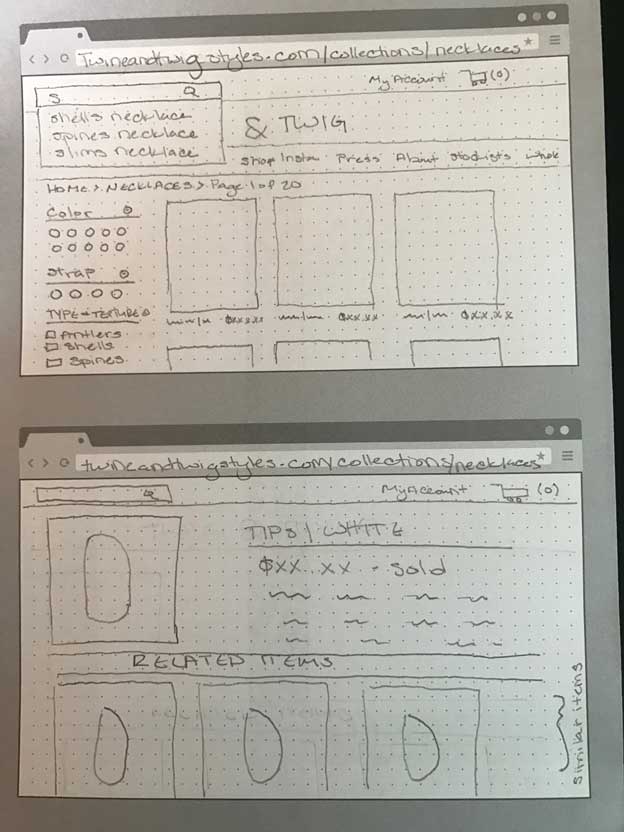 Twineandtwigstyles.com/collections/necklaces
My Account (0)
S
shells necklace
spines necklace
slims necklace
& TWIG
Shop Insta Press About stockists whole
HOME > NECKLACES > Page 1 of 20
Color
Strap
TYPE + TEXTURE
Antlers
Shells
Spines
$xx.xx $xx.xx $xx.xx
twineandtwigstyles.com/collections/necklaces
My Account (0)
TIPS | WHITE
$XX.XX - Sold
RELATED ITEMS
similar items